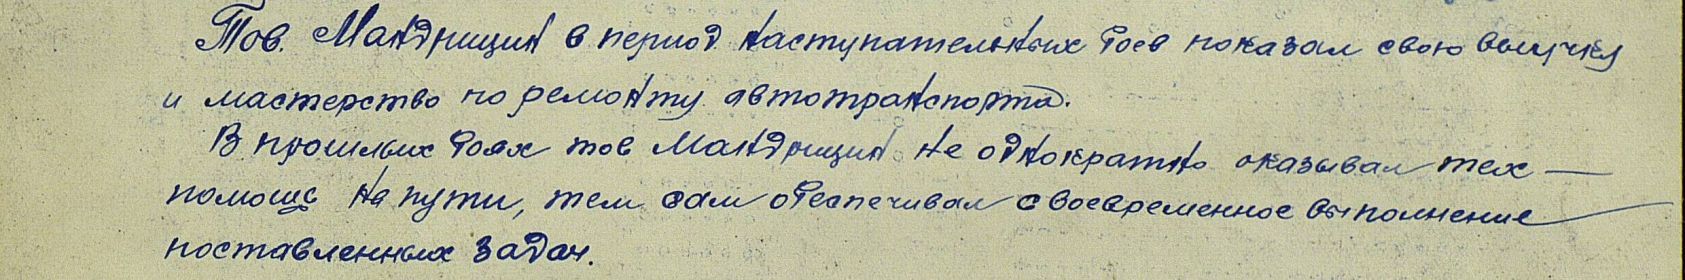 Тов. Мандрищин в период наступательных боев показал свою выучку
и мастерство по ремонту автотранспорта.
В прошлых боях тов Мандрищин не однократно оказывал тех –
помощь на пути, тем сам обеспечивал своевременное выполнение
поставленных задач.